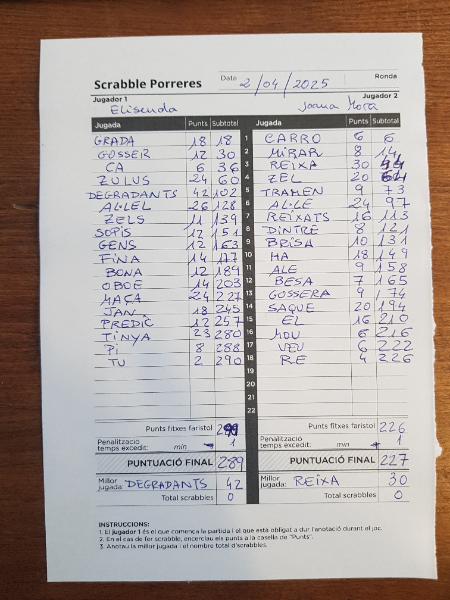 Scrabble Porreres Data 2/04/2025 Ronda
Jugador 1 Jugador 2
Elisenda Joana Mora
Jugada Punts Subtotal Jugada Punts Subtotal
GRADA 18 18 1 CARRO 6 6
GOSSER 12 30 2 MIRAR 8 14
CA 6 36 3 REIXA 30 44
ZULUS 24 60 4 ZEL 20 64
DEGRADANTS 42 102 5 TRAMEN 9 73
AL·LEL 26 128 6 AL·LE 24 97
ZELS 11 139 7 REIXATS 16 113
SOPIS 12 151 8 DINTRE 8 121
GENS 12 163 9 BRISA 10 131
FINA 14 177 10 HA 18 149
BONA 12 189 11 ALE 9 158
OBOE 14 203 12 BESA 7 165
MAÇA 24 227 13 GOSSERA 9 174
JAN 18 245 14 SAQUE 20 194
PREDIC 12 257 15 EL 16 210
TINYA 23 280 16 MOU 6 216
PI 8 288 17 VEU 6 222
TU 2 290 18 RE 4 226
19
20
21
22
Punts fitxes faristol Punts fitxes faristol 226
Penalització Penalització
temps excedit: min 1 temps excedit: min 1
PUNTUACIÓ FINAL 289 PUNTUACIÓ FINAL 227
Millor Millor
jugada: DEGRADANTS 42 jugada: REIXA 30
Total scrabbles 0 Total scrabbles 0
INSTRUCCIONS:
1. El jugador 1 és el que comença la partida i el que està obligat a dur l'anotació durant el joc.
2. En el cas de fer scrabble, encerclau els punts a la casella de "Punts".
3. Anotau la millor jugada i el nombre total d'scrabbles.